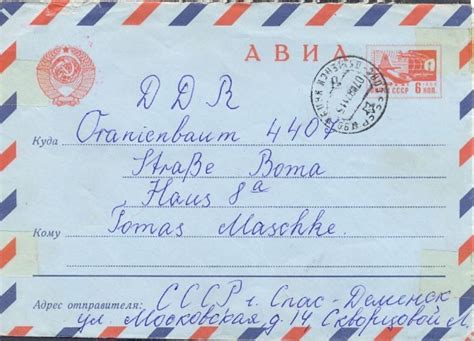 АВИА
ПОЧТА СССР 6 КОП.
DDR
Куда Oranienbaum 4407
Straße Boma
Haus 8a
Кому Tomas Maschke.
Адрес отправителя: СССР г. Спас-Деменск
ул. Московская д. 14 Скворцовой М